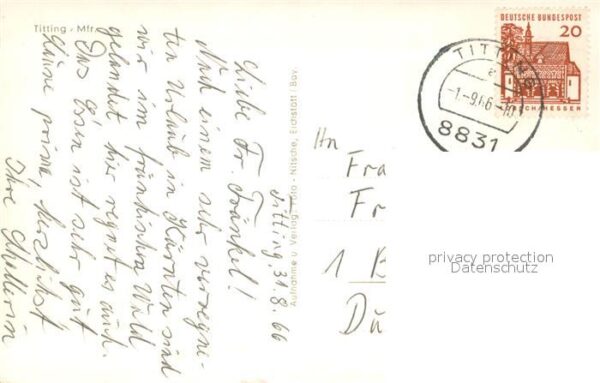 Titting - Mfr.
Titting, 31.8.66
Liebe Fr. Fränkel!
Nach einem sehr verregne-
ten Urlaub in Kärnten sind
wir im fränkischen Wald
gelandet hier regnet es auch.
Das Essen ist sehr gut
Weine prima, herzlichst
Ihre
Aufnahme u. Verlag: Foto - Nitsche, Eichstätt / Bay.
DEUTSCHE BUNDESPOST
20
TITTING
a
-1.-9.66-10
8831
An
Fra
Fr
1 B
Dü
privacy protection
Datenschutz